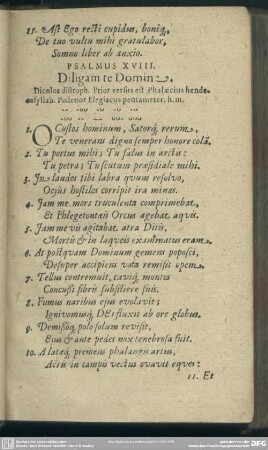 15. Ast Ego recti cupidus, boniq,
De tuo vultu mihi gratulabor,
Somno liber ab anxio.
PSALMUS XVIII.
Diligam te Domine.
Dicolos distroph. Prior versus est Phalæcius hende-
casyllab. Posterior Elegiacus pentameter. h.m.
1. O Custos hominum, Satorq́, rerum,
Te venerans digno semper honore colā.
2. Tu portus mihi; Tu salus in arctis:
Tu petra; Tu scutum præsidiale mihi.
3. In laudes tibi labra quum resolvo,
Ocyùs hostiles corripit ira minas.
4. Jam me mors truculenta comprimebat,
Et Phlegetontæis Orcus agebat aqvis.
5. Jam me vis agitabat atra Ditis,
Mortis & in laqveis exanimatus eram.
6. At postqvam Dominum gemens poposci,
Desuper accipiens vota remisit opem.
7. Tellus contremuit, cavíq, montes
Concussi fibris subsiliere suis.
8. Fumus naribus ejus evolavit;
Ignivomusq́, DEfluxit ab ore globus.
9. Demissoq́, polo solum revisit,
Ejus & ante pedes nox tenebrosa stetit.
10. Alatæq́, premens phalangis artus,
Aëris in campis vectus ovavit eques:
11. Et